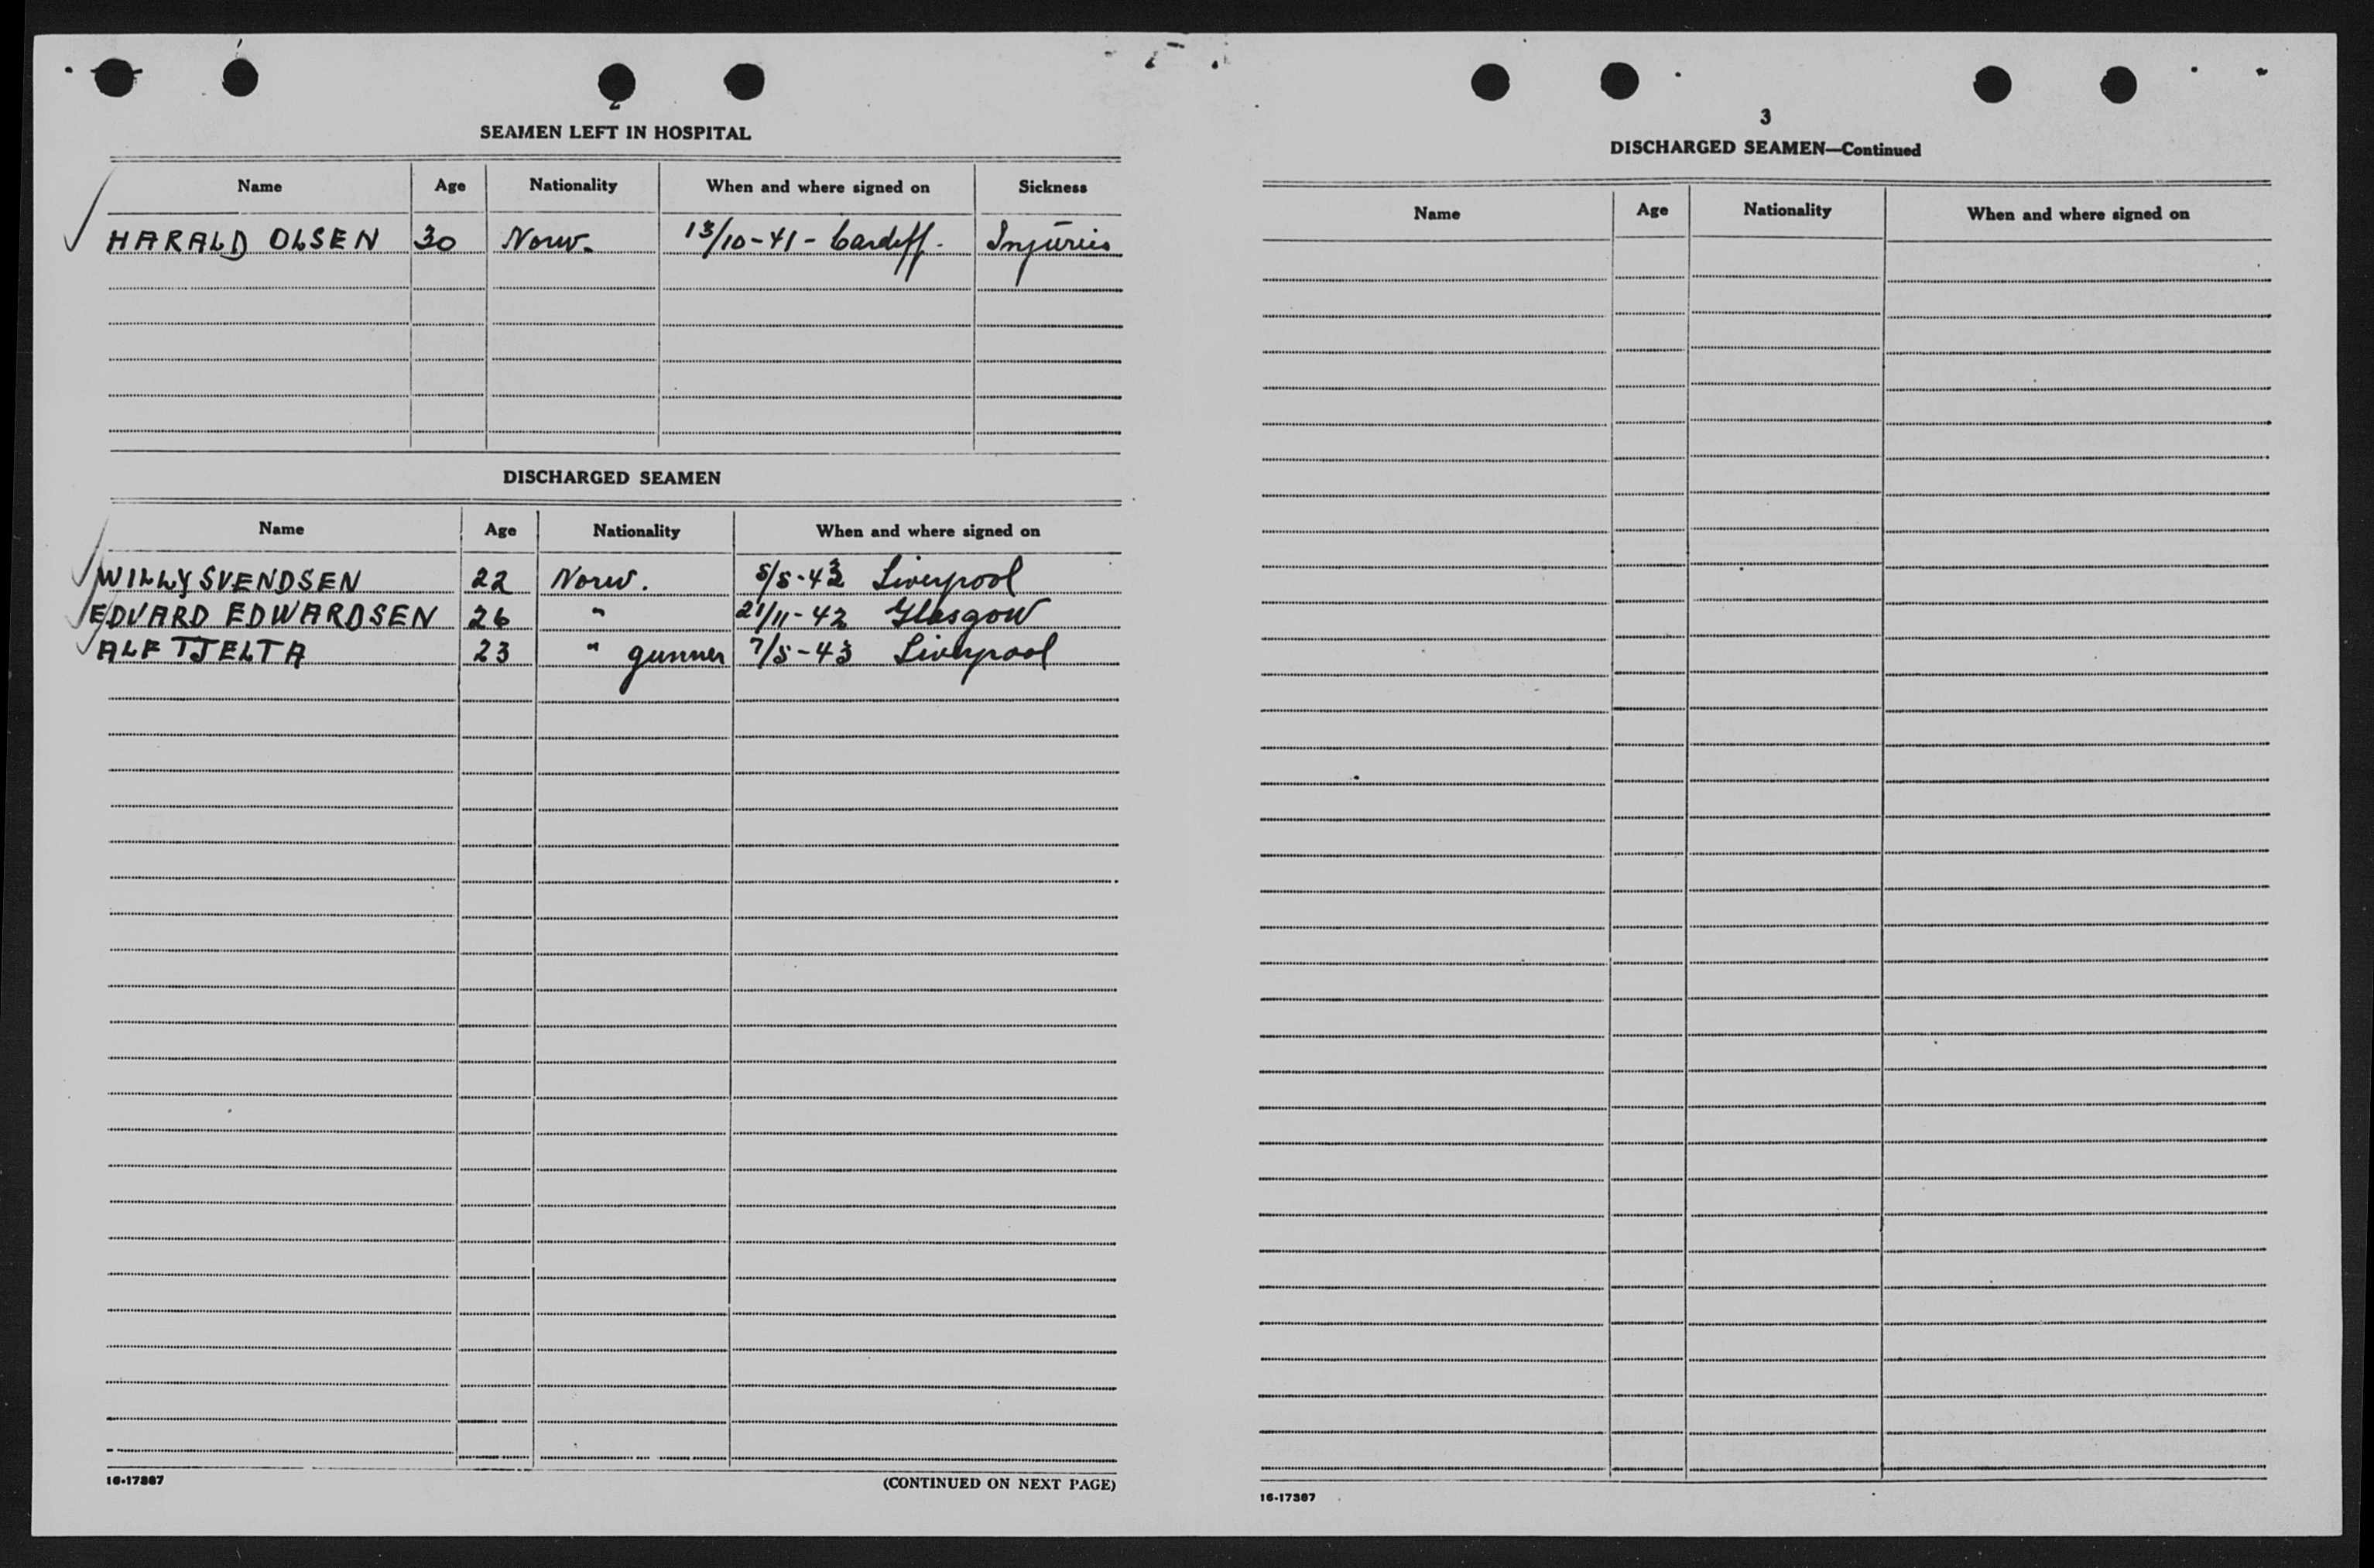 2
SEAMEN LEFT IN HOSPITAL
Name Age Nationality When and where signed on Sickness
HARALD OLSEN 30 Norw. 13/10-41- Cardiff. Injuries
DISCHARGED SEAMEN
Name Age Nationality When and where signed on
WILLY SVENDSEN 22 Norw. 5/5-43 Liverpool
EDVARD EDWARDSEN 26 " 21/11-42 Glasgow
ALF TJELTA 23 " gunner 7/5-43 Liverpool
16-17367 (CONTINUED ON NEXT PAGE)
3
DISCHARGED SEAMEN—Continued
Name Age Nationality When and where signed on
16-17367